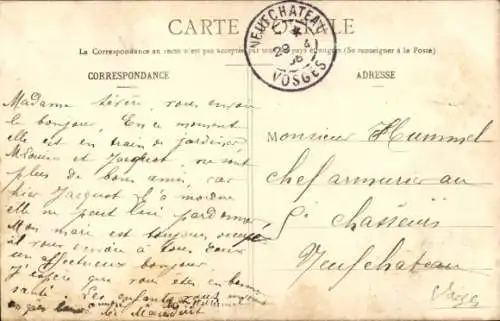 CARTE POSTALE
La Correspondance au recto n'est pas acceptée par tous les pays étrangers. (Se renseigner à la Poste)
CORRESPONDANCE
ADRESSE
NEUFCHATEAU
VOSGES
Madame Sévère, vous envoie
le bonjour, En ce moment
elle est en train de jardiner
et Jacquot, ne sont
plus de bons amis, car
hier Jacquot l'a mordue
elle ne peut lui pardonner
Mon mari est toujours occupé
il vous envoie à tous deux
un affectueux bonjour
J'espère que vous êtes en bonne
santé. Les enfants vous
Monsieur Hummel
chef armurier au
Chasseurs
Neufchâteau
Vosges